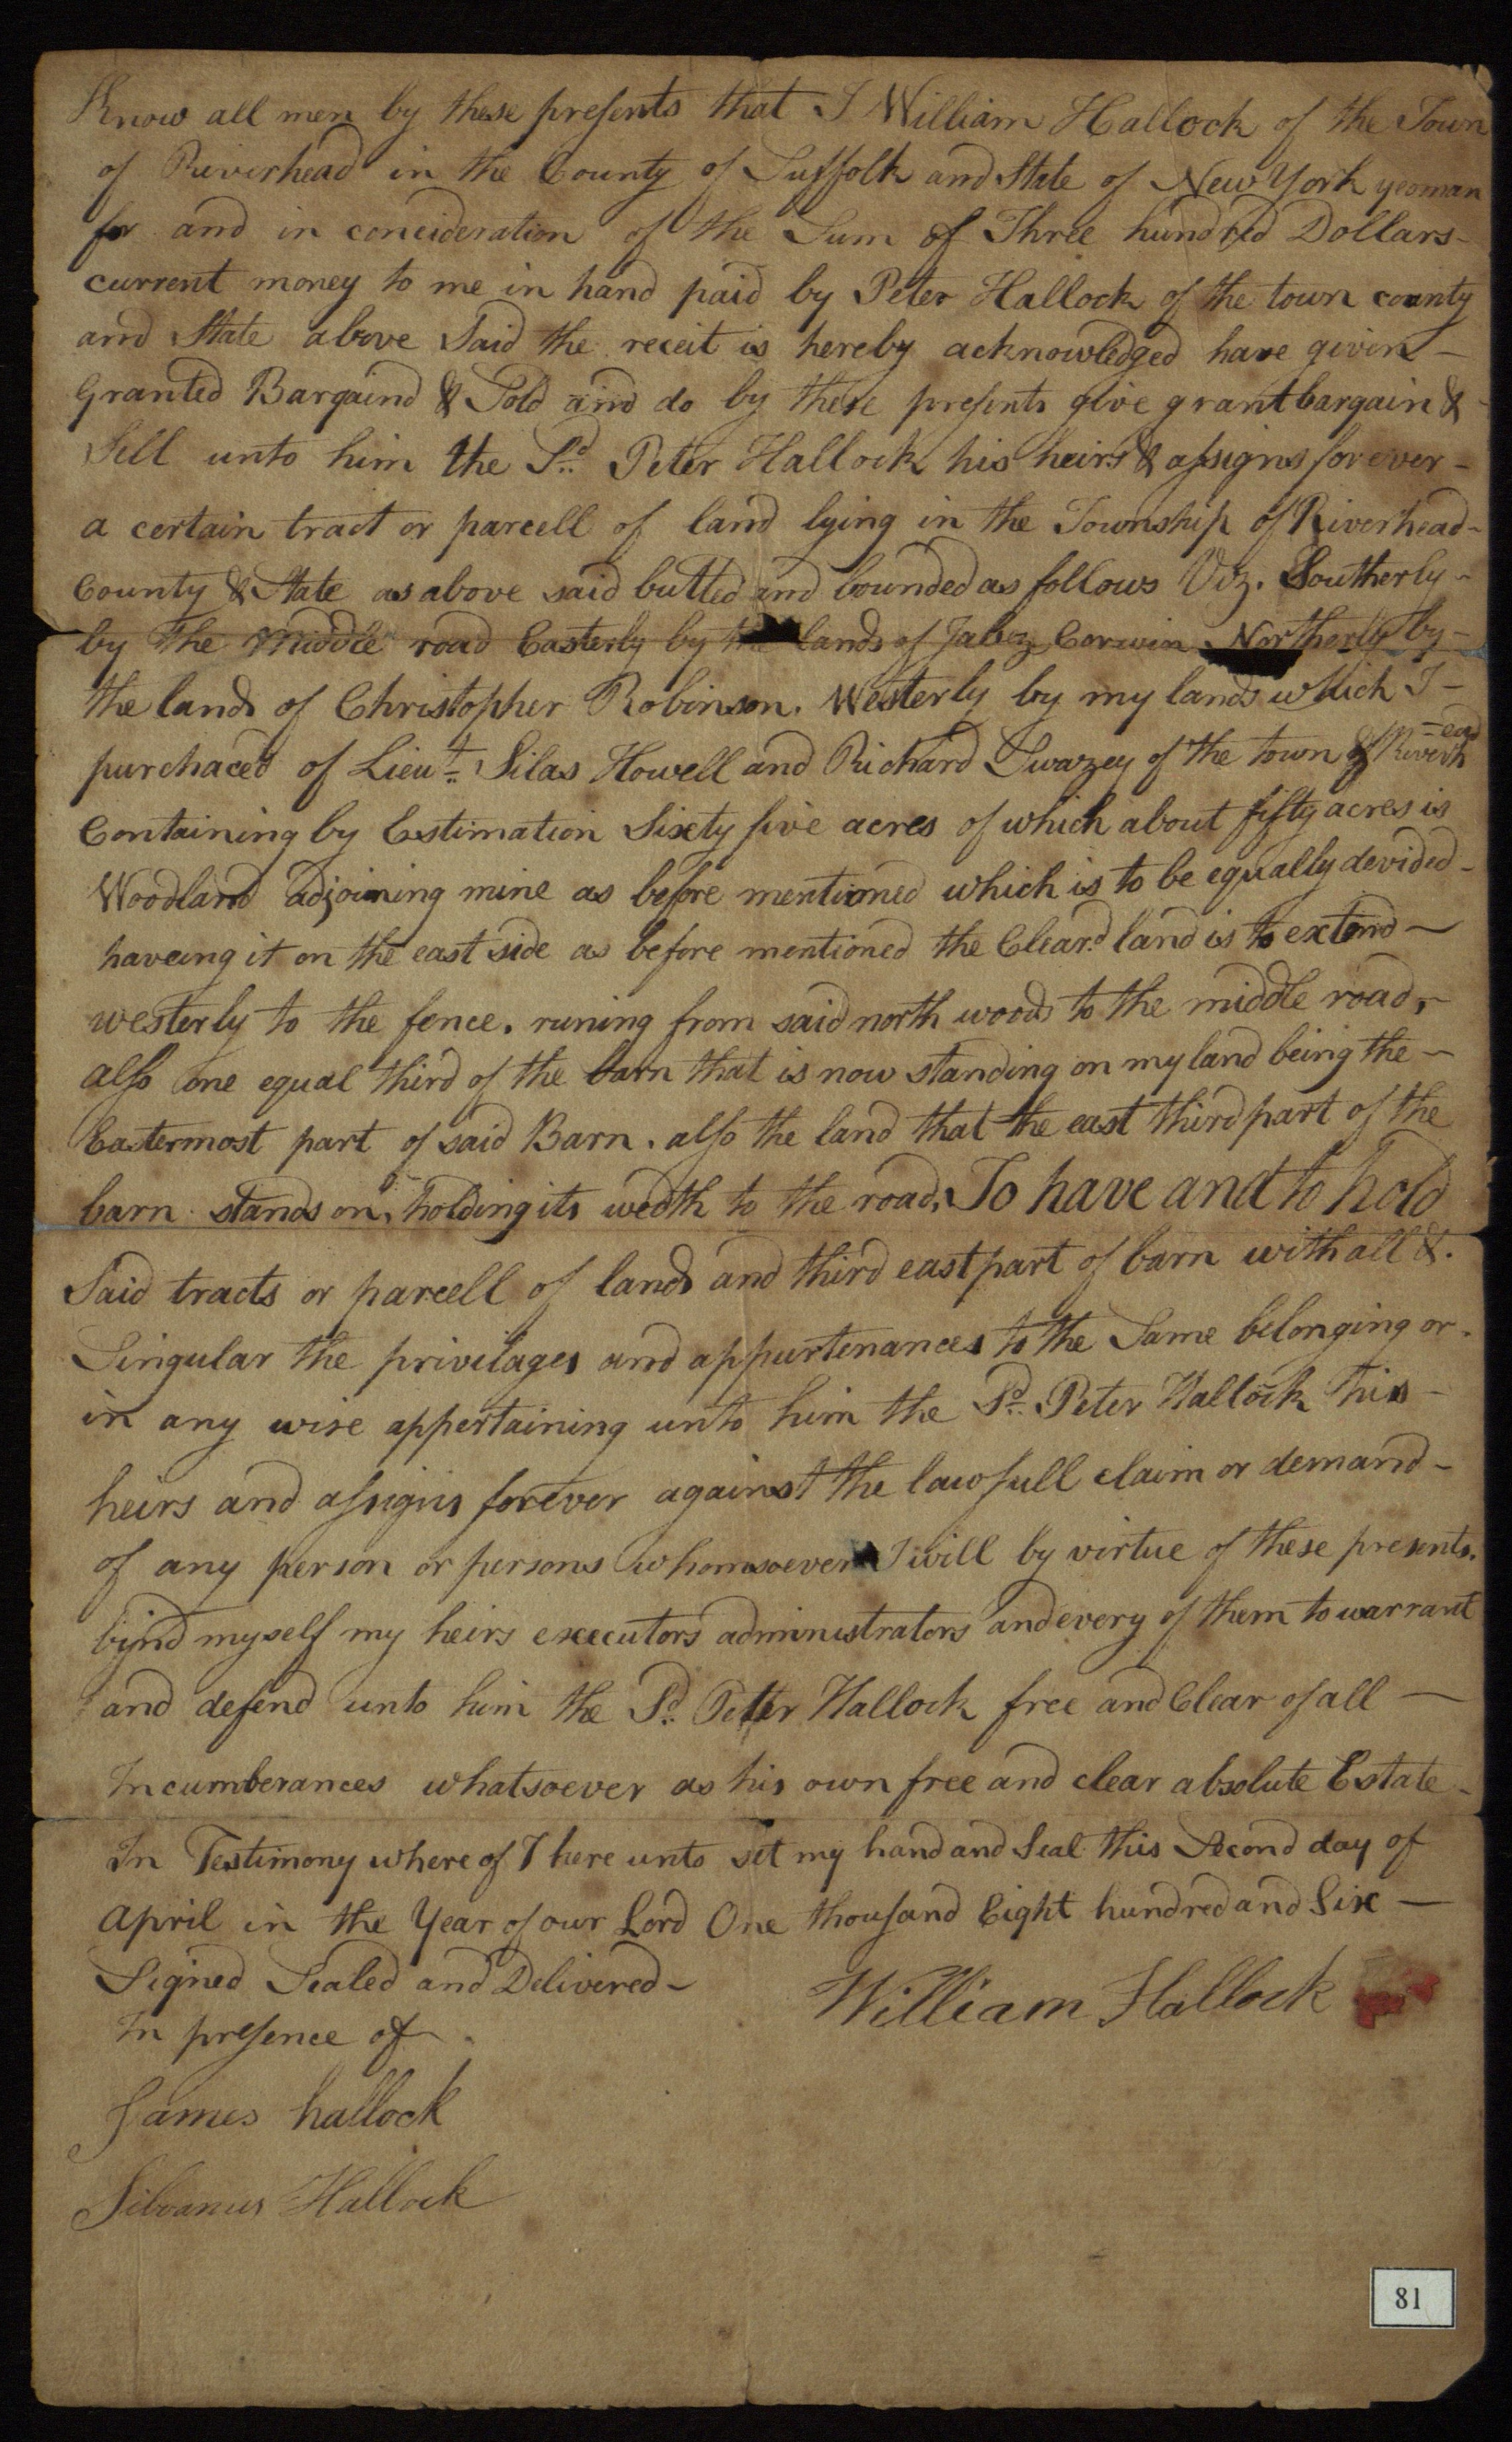 Know all men by these presents that I William Hallock of the Town
of Riverhead in the County of Suffolk and State of New York yeoman
for and in concideration of the Sum of Three hundred Dollars
current money to me in hand paid by Peter Hallock of the town county
and State above Said the receit is hereby acknowledged have given
Granted Bargaind & Sold and do by these presents give grant bargain &
Sell unto him the Sd Peter Hallock his heirs & assigns forever
a certain tract or parcell of land lying in the Township of Riverhead
County & State as above said butted and bounded as follows Viz. Southerly
by the Middle road Easterly by the lands of Jabez Corwin Northerly by
the lands of Christopher Robinson. Westerly by my lands which I
purchaced of Lieut Silas Howell and Richard Swazey of the town of Riverh=ead
Containing by Estimation Sixty five acres of which about fifty acres is
Woodland adjoining mine as before mentioned which is to be equally devided
haveing it on the east side as before mentioned the Cleard land is to extend
westerly to the fence. runing from said north woods to the middle road,
also one equal third of the barn that is now standing on my land being the
Eastermost part of said Barn. also the land that the east third part of the
barn stands on, holding its wedth to the road, To have and to hold
Said tracts or parcell of lands and third east part of barn with all &
Singular the privilages and appurtenances to the Same belonging or
in any wise appertaining unto him the Sd Peter Hallock his
heirs and assigns forever against the lawfull claim or demand
of any person or persons whomsoever I will by virtue of these presents
bind myself my heirs executors administrators and every of them to warrant
and defend unto him the Sd Peter Hallock free and Clear of all
Incumberances whatsoever as his own free and clear absolute Estate
In Testimony where of I here unto set my hand and Seal this Second day of
April in the Year of our Lord One thousand Eight hundred and Six
Signed Sealed and Delivered
William Hallock
In presence of
James hallock
Silvanus Hallock
81